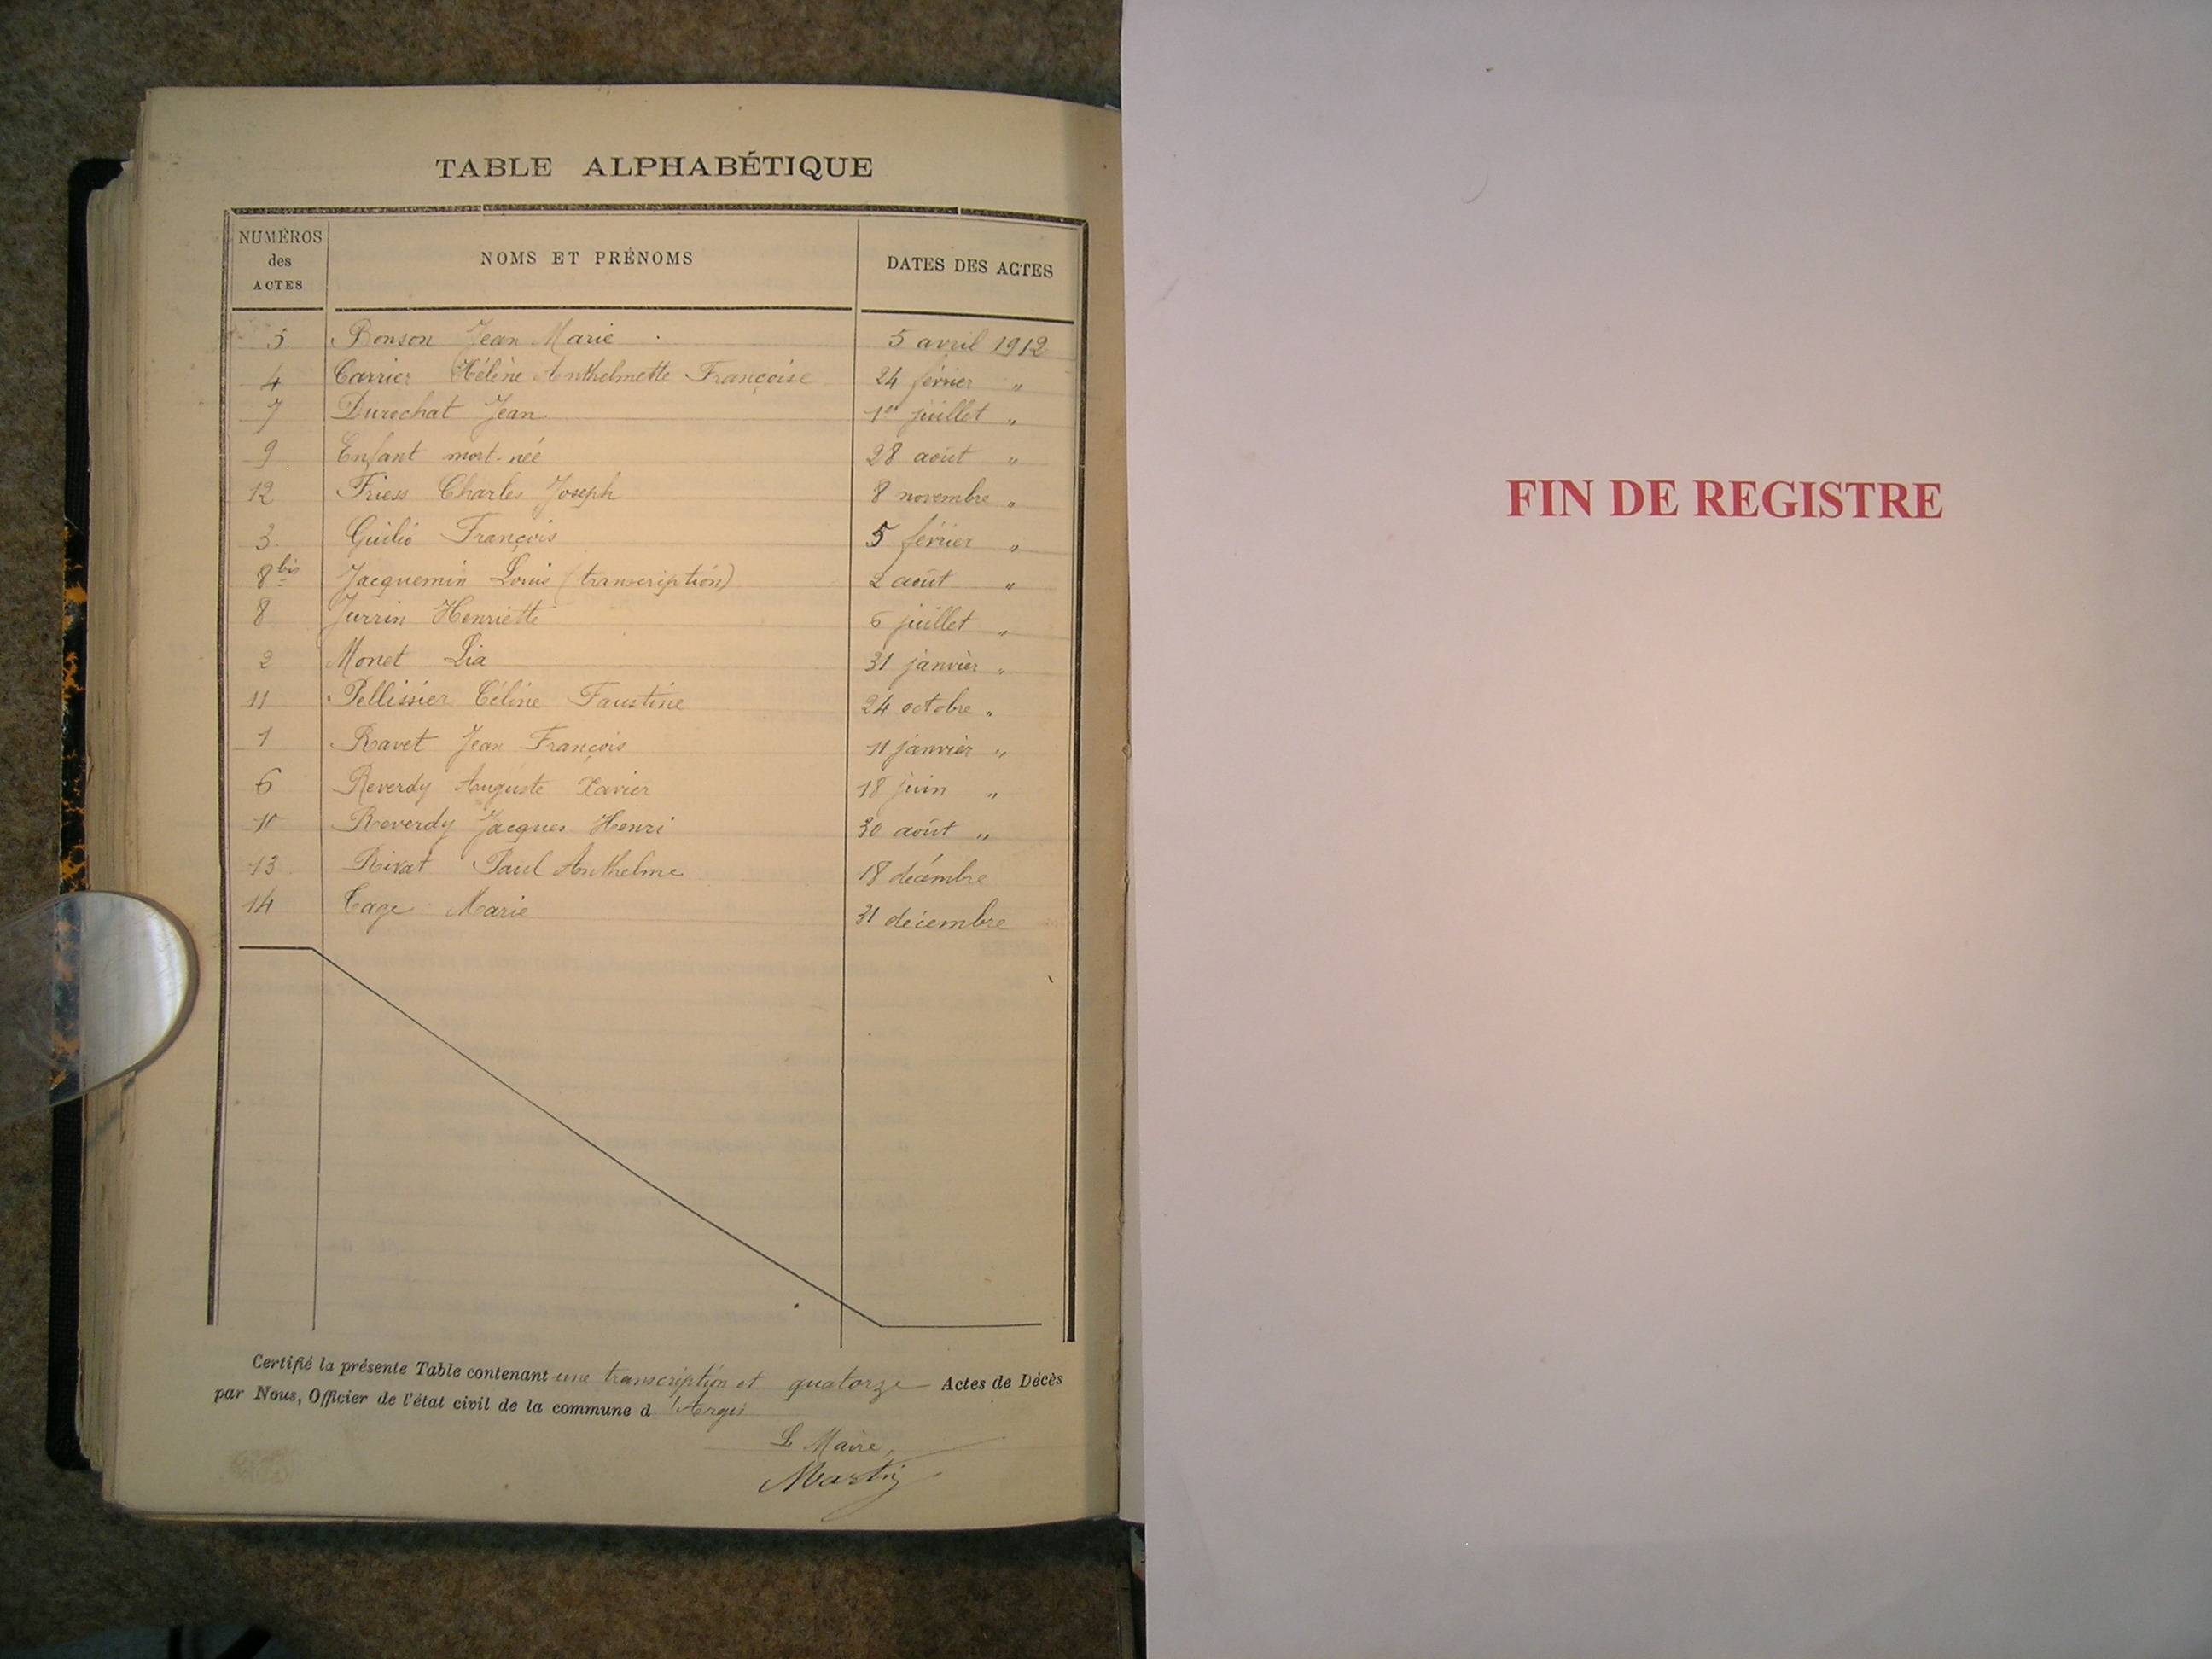 TABLE ALPHABÉTIQUE
NUMÉROS des ACTES NOMS ET PRÉNOMS DATES DES ACTES
5 Bonson Jean Marie 5 avril 1912
4 Carrier Hélène Anthelmette Françoise 24 février "
7 Durochat Jean 1er juillet "
9 Enfant mort-née 28 août "
12 Friess Charles Joseph 8 novembre "
3 François 5 février "
8 bis Jacquemin Louis (transcription) 2 août "
8 Jurrin Henriette 6 juillet "
2 Monet Lia 31 janvier "
11 Pellissier Céline Faustine 24 octobre "
1 Ravet Jean François 11 janvier "
6 Reverdy Auguste Xavier 18 juin "
10 Reverdy Jacques Henri 30 août "
13 Rivat Paul Anthelme 18 décembre
14 Tage Marie 31 décembre
Certifié la présente Table contenant une transcription et quatorze Actes de Décès
par Nous, Officier de l'état civil de la commune d'Argis
Le Maire,
Martin
FIN DE REGISTRE